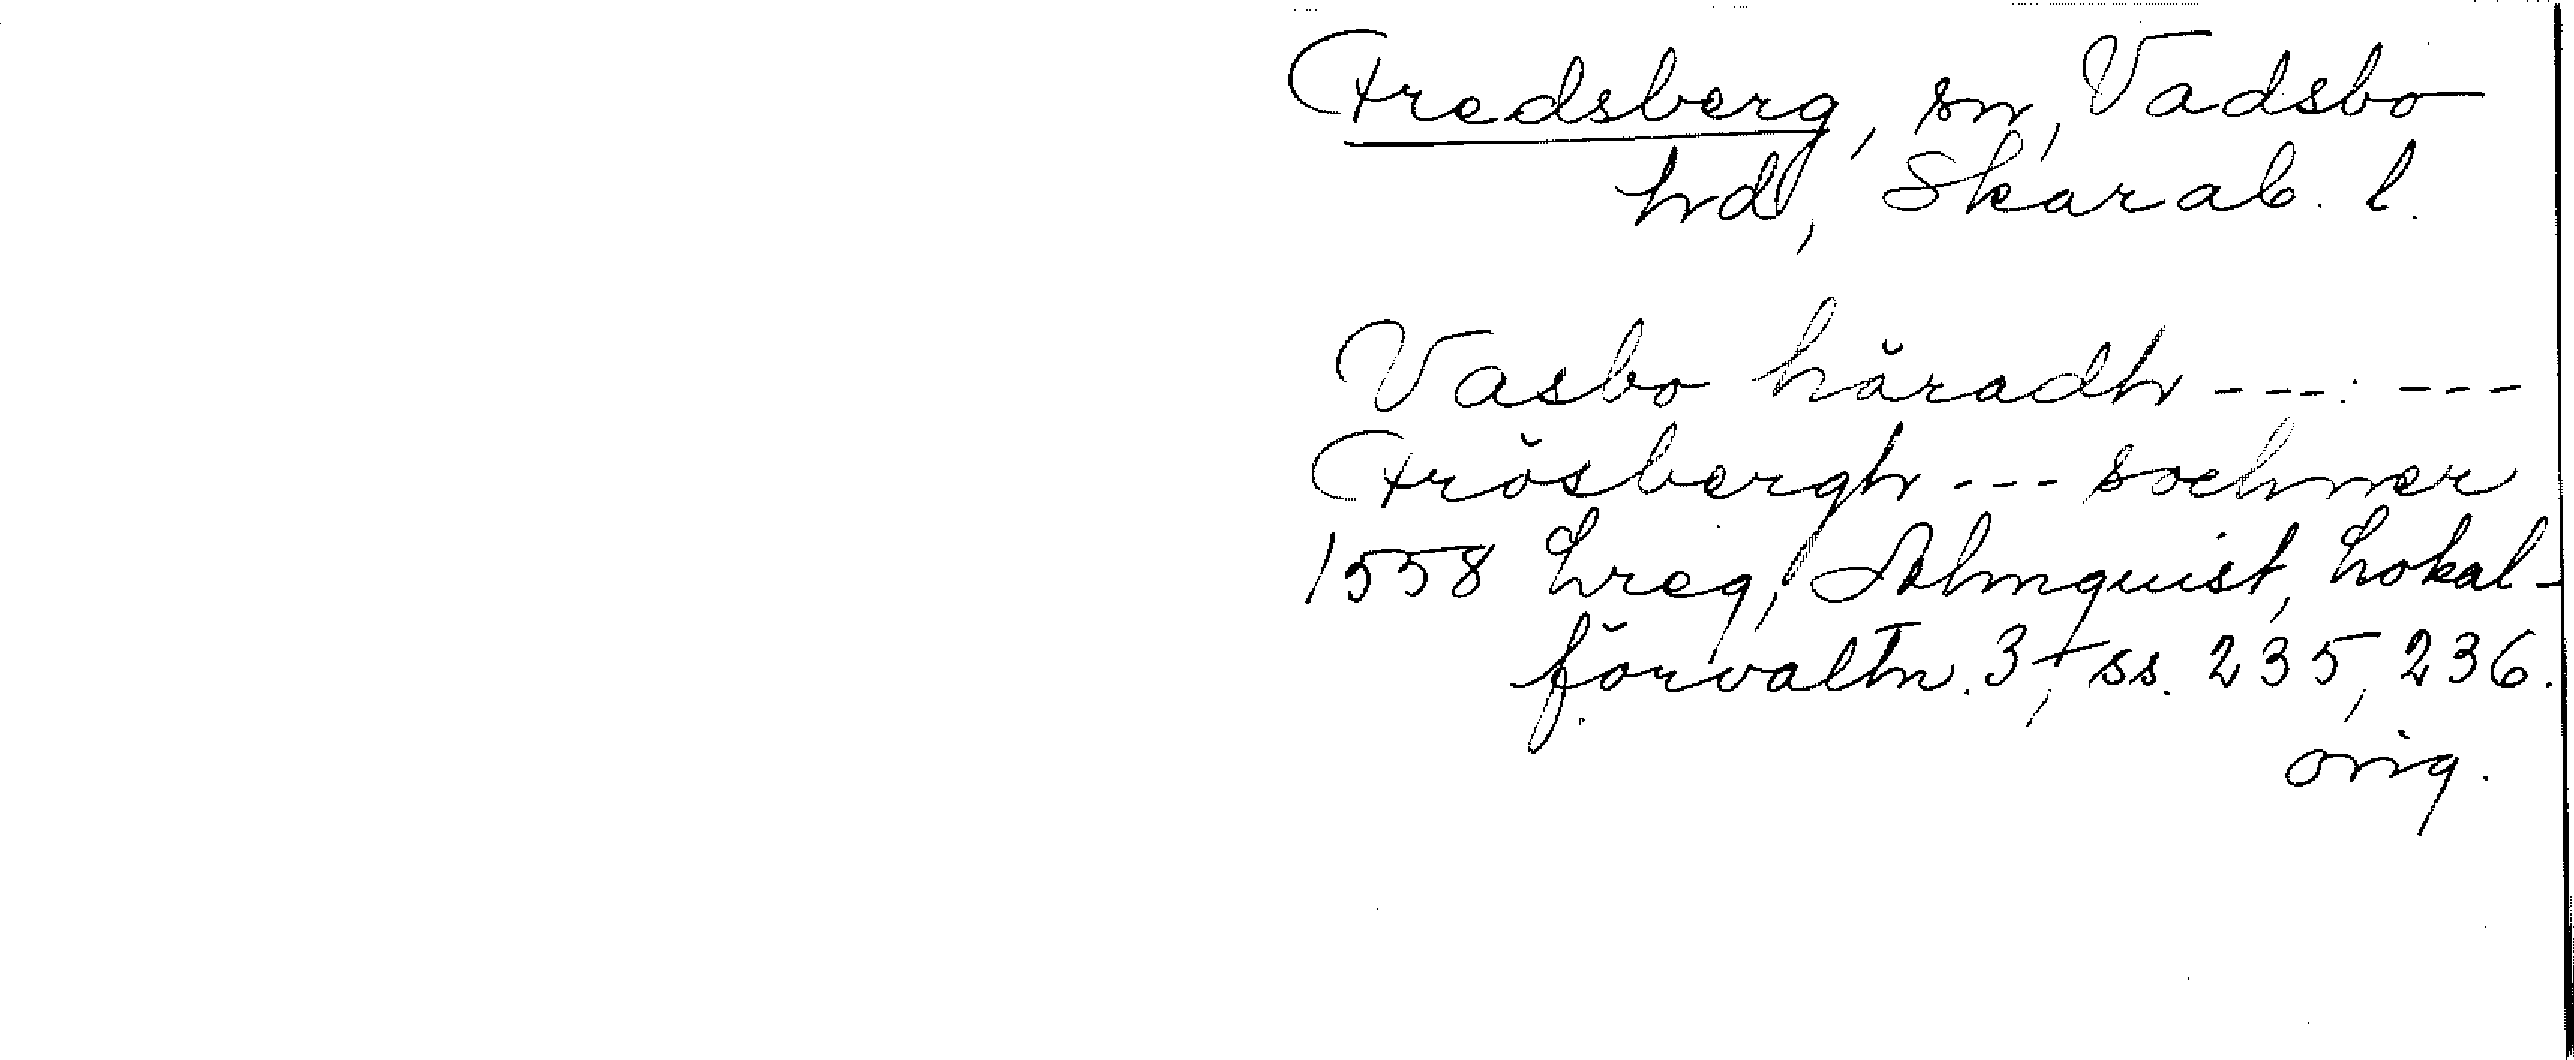 Fredsberg, sn, Vadsbo
hd, Skarab. l.
Vasbo häradh ---: ---
Frösbergh --- sochner
1558 Lreg, Almquist, Lokal-
förvaltn. 3, ss. 235, 236.
orig.